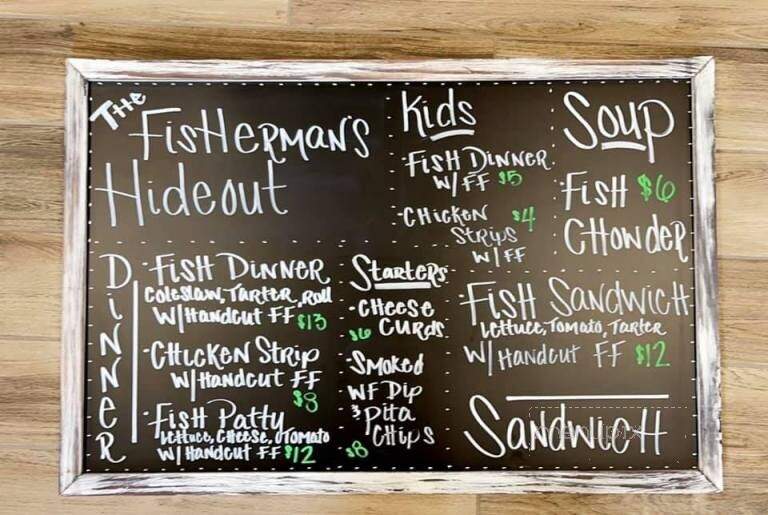 The
Fisherman's
Hideout
Kids
• Fish Dinner
w/ FF $5
• Chicken $4
Strips
w/ FF
Soup
Fish $6
Chowder
Dinner
• Fish Dinner
Coleslaw, Tarter, Roll
w/ Handcut FF $13
• Chicken Strip
w/ Handcut FF
$8
• Fish Patty
Lettuce, Cheese, Tomato
w/ Handcut FF $12
Starters
• Cheese
$6 Curds
• Smoked
WF Dip
& Pita
Chips
$8
Fish Sandwich
Lettuce, Tomato, Tarter
w/ Handcut FF $12
Sandwich